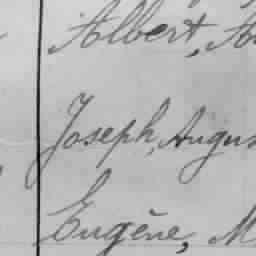 Albert, A
Joseph, Augus
Eugène, M